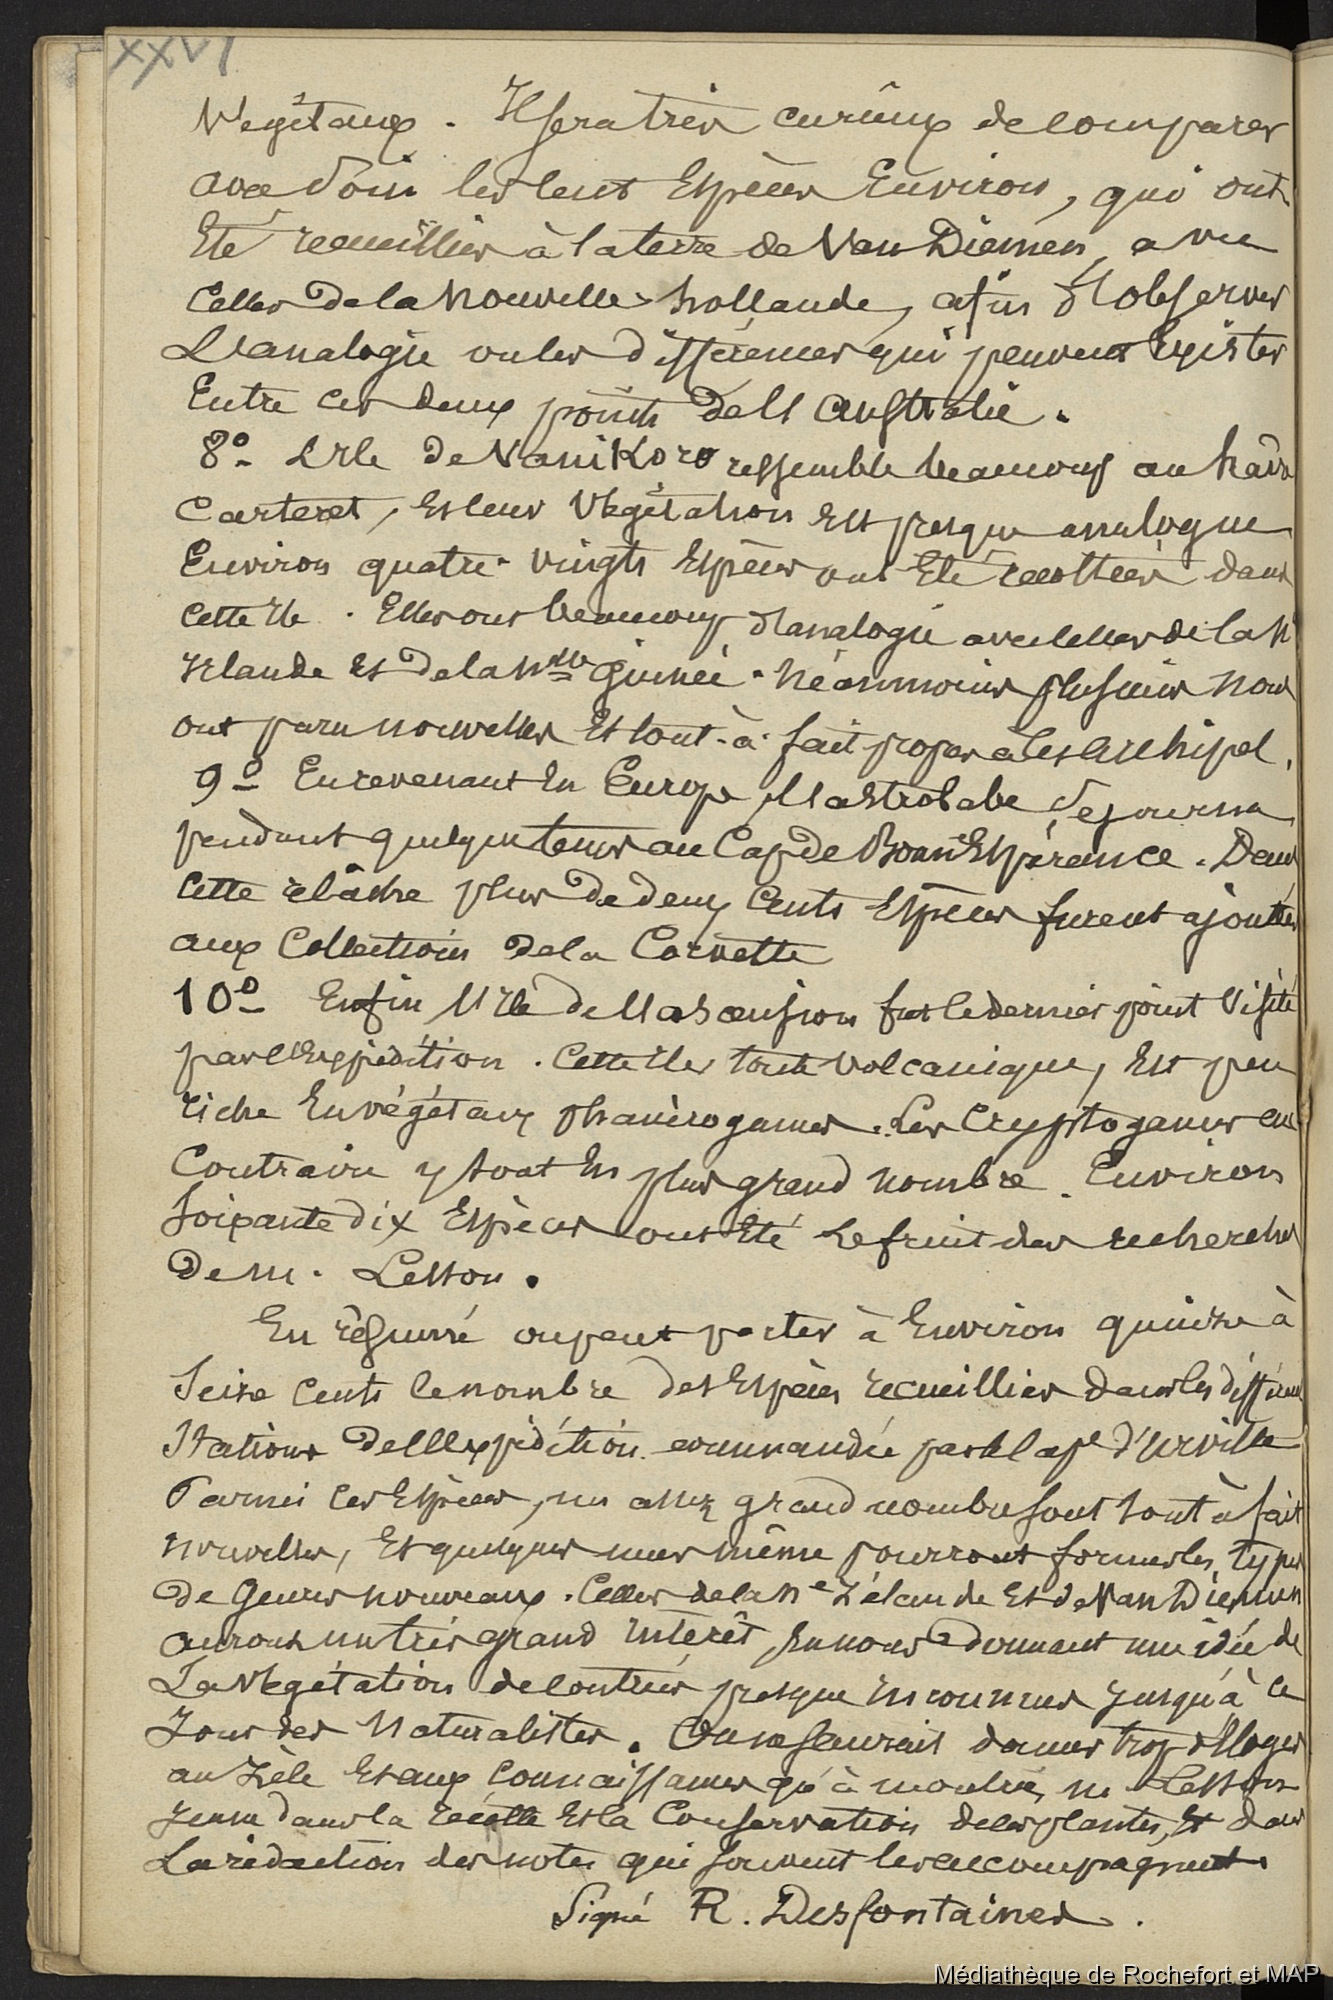 XXVI
Végétaux. Il sera très curieux de comparer
avec soin les cent Espèces Environ, qui ont
Eté recueillies à la terre de Van Diemen, avec
Celles de la Nouvelle-hollande, afin d'observer
L'analogie ou les différences qui peuvent Exister
Entre ces deux points de l'australie.
8º- L'Ile de Vanikoro ressemble beaucoup au havre
Carteret, Et leur Végétation Est presque analogue
Environ quatre-vingts Espèces ont Eté récoltées dans
Cette Ile. Elles ont beaucoup d'analogie avec celles de la Nlle
Irlande Et de la Nlle Guinée. Néanmoins plusieurs nous
ont paru nouvelles Et tout-à-fait propres à cet archipel.
9º- En revenant En Europe, l'astrolabe séjourna
pendant quelque temps au Cap de Bonne Espérance. Dans
Cette relâche plus de deux Cents Espèces furent ajoutées
aux Collections de la Corvette
10º- Enfin l'Ile de l'ascension fut le dernier point Visité
par l'Expédition. Cette Ile, toute volcanique, Est peu
riche En végétaux phanérogames. Les Cryptogames au
Contraire y sont En plus grand nombre. Environ
Soixante dix Espèces ont Eté le fruit des recherches
de M. Lesson.
En résumé on peut porter à Environ quinze à
Seize Cents le nombre des Espèces recueillies dans les différentes
Stations de l'Expédition commandée par le Cape d'Urville
Parmi ces Espèces, un assez grand nombre sont tout à fait
nouvelles, Et quelques unes même pourront former les types
de Genres nouveaux. Celles de la Ne Zélande Et de Van Diemen
auront un très grand intérêt, En nous donnant une idée de
La Végétation de contrées presque inconnues jusqu'à ce
Jour des Naturalistes. On ne saurait donner trop d'Eloges
au Zèle Et aux Connaissances qu'à montré, M Lesson
jeune dans la récolte Et la Conservation des plantes, Et dans
La rédaction des notes qui souvent les accompagnent.
Signé R. Desfontaines.
Médiathèque de Rochefort et MAP